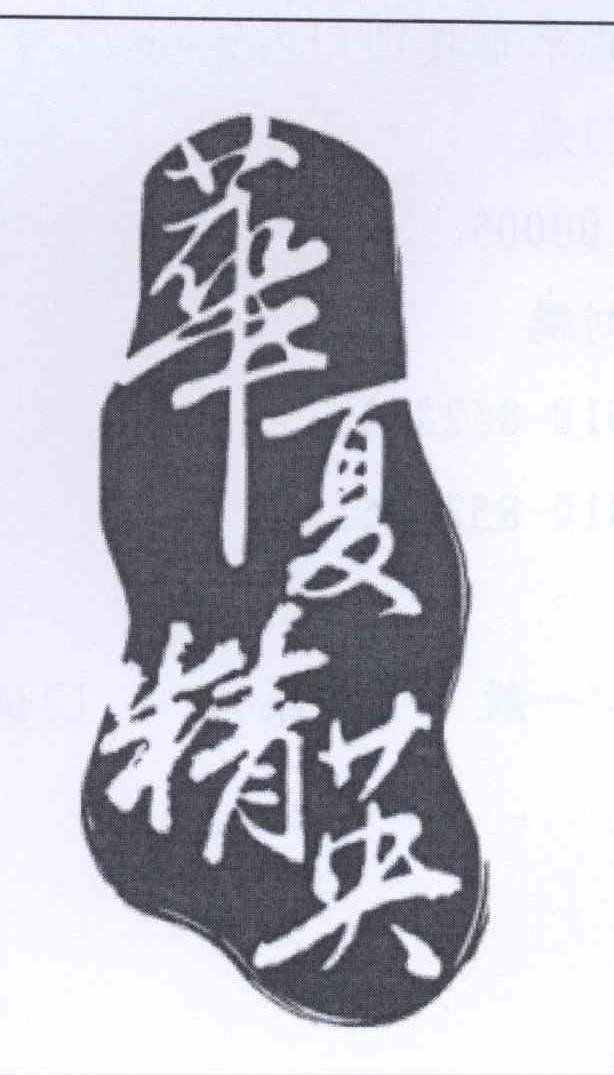 華夏
精英